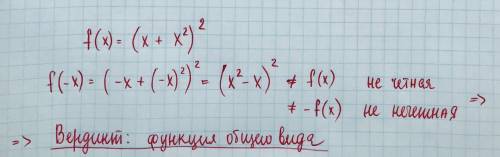 f(x) = (x + x²)²
f(-x) = (-x + (-x)²)² = (x² - x)² ≠ f(x) не четная
≠ -f(x) не нечетная =>
=> Вердикт: функция общего вида